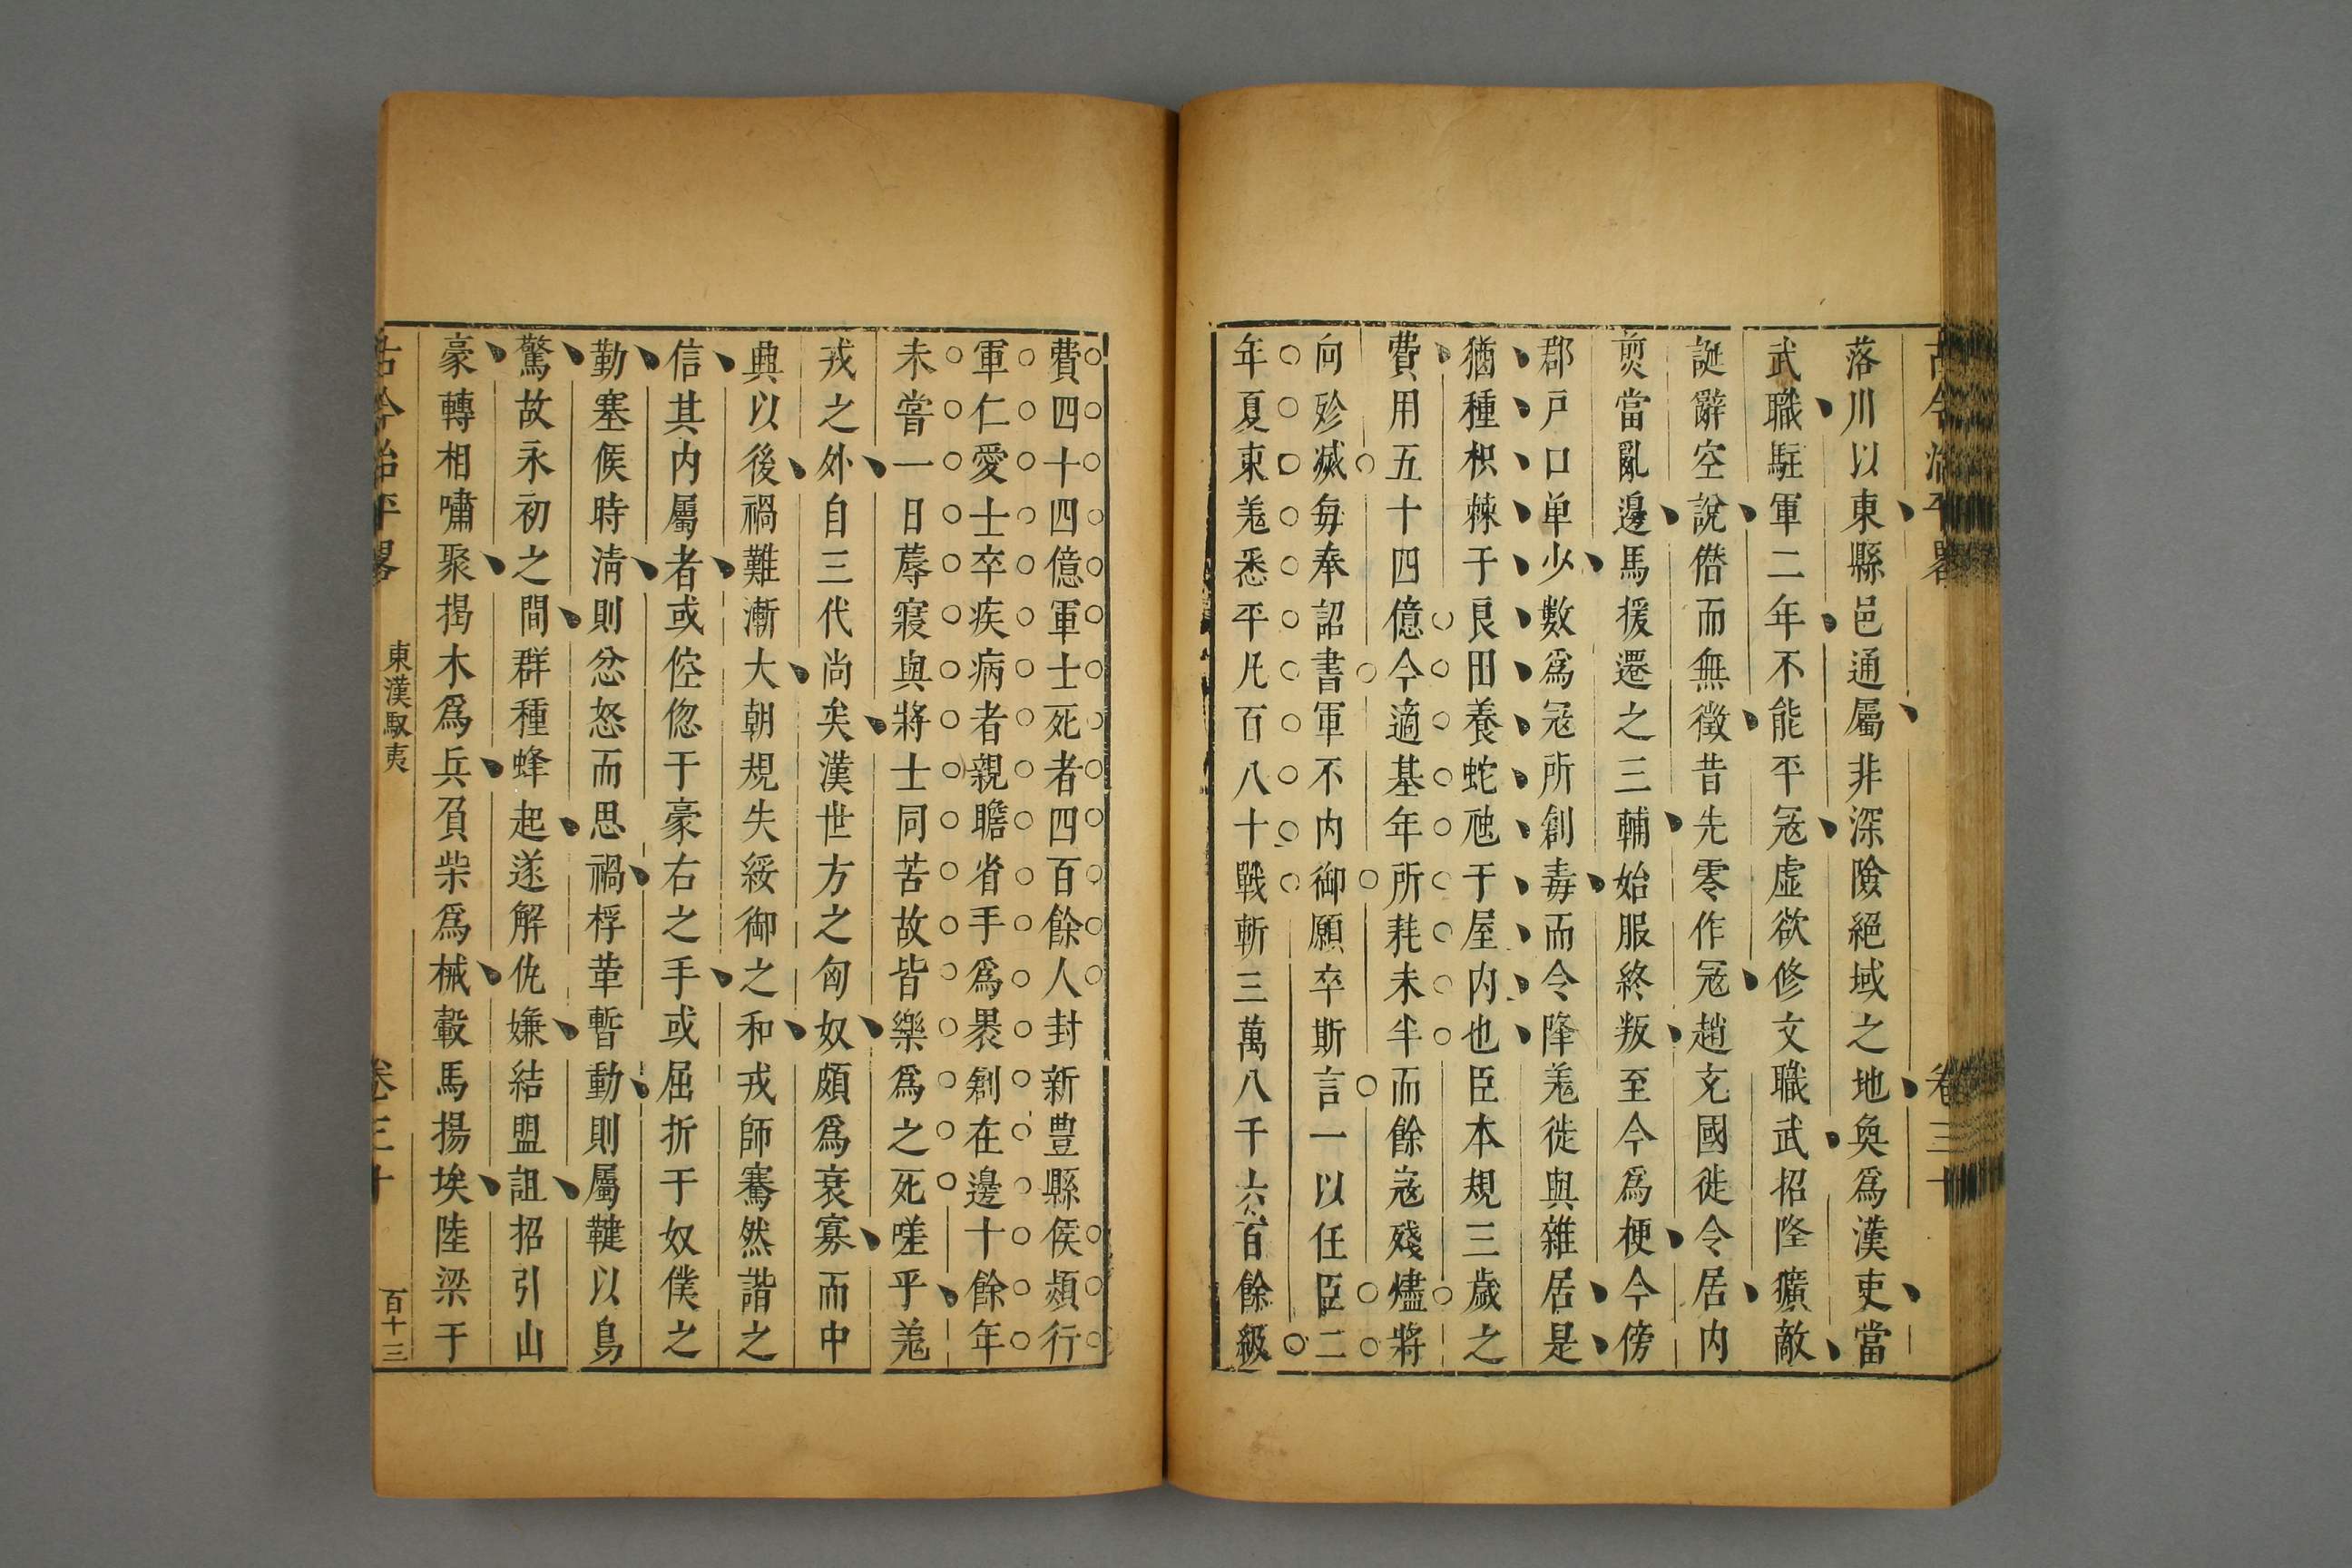 古今治平畧 卷三十
落川以東縣邑通屬非深險絕域之地奐爲漢吏當
武職駐軍二年不能平冦虛欲修文職武招降獷敵
誕辭空說僭而無徵昔先零作冦趙充國徙令居內
煎當亂邊馬援遷之三輔始服終叛至今爲梗今傍
郡戶口单少數爲冦所創毒而令降羗徙與雜居是
猶種枳棘于良田養蛇虺于屋内也臣本規三歲之
費用五十四億今適朞年所耗未半而餘寇殘燼將
向殄滅每奉詔書軍不内御願卒斯言一以任臣二
年夏東羗悉平凡百八十戰斬三萬八千六百餘級
費四十四億軍士死者四百餘人封新豊縣侯熲行
軍仁愛士卒疾病者親瞻省手爲褁創在邊十餘年
未嘗一日蓐寢與將士同苦故皆樂爲之死嗟乎羗
戎之外自三代尚矣漢世方之匈奴頗爲衰寡而中
典以後禍難漸大朝規失綏御之和戎師騫然諧之
信其内屬者或倥偬于豪右之手或屈折于奴僕之
勤塞候時淸則忿怒而思禍桴革暫動則屬鞬以鳥
驚故永初之間群種蜂起遂解仇嫌結盟詛招引山
豪轉相嘯聚揭木爲兵負柴爲械轂馬揚埃陸梁于
古今治平畧 東漢馭夷 卷三十 百十三